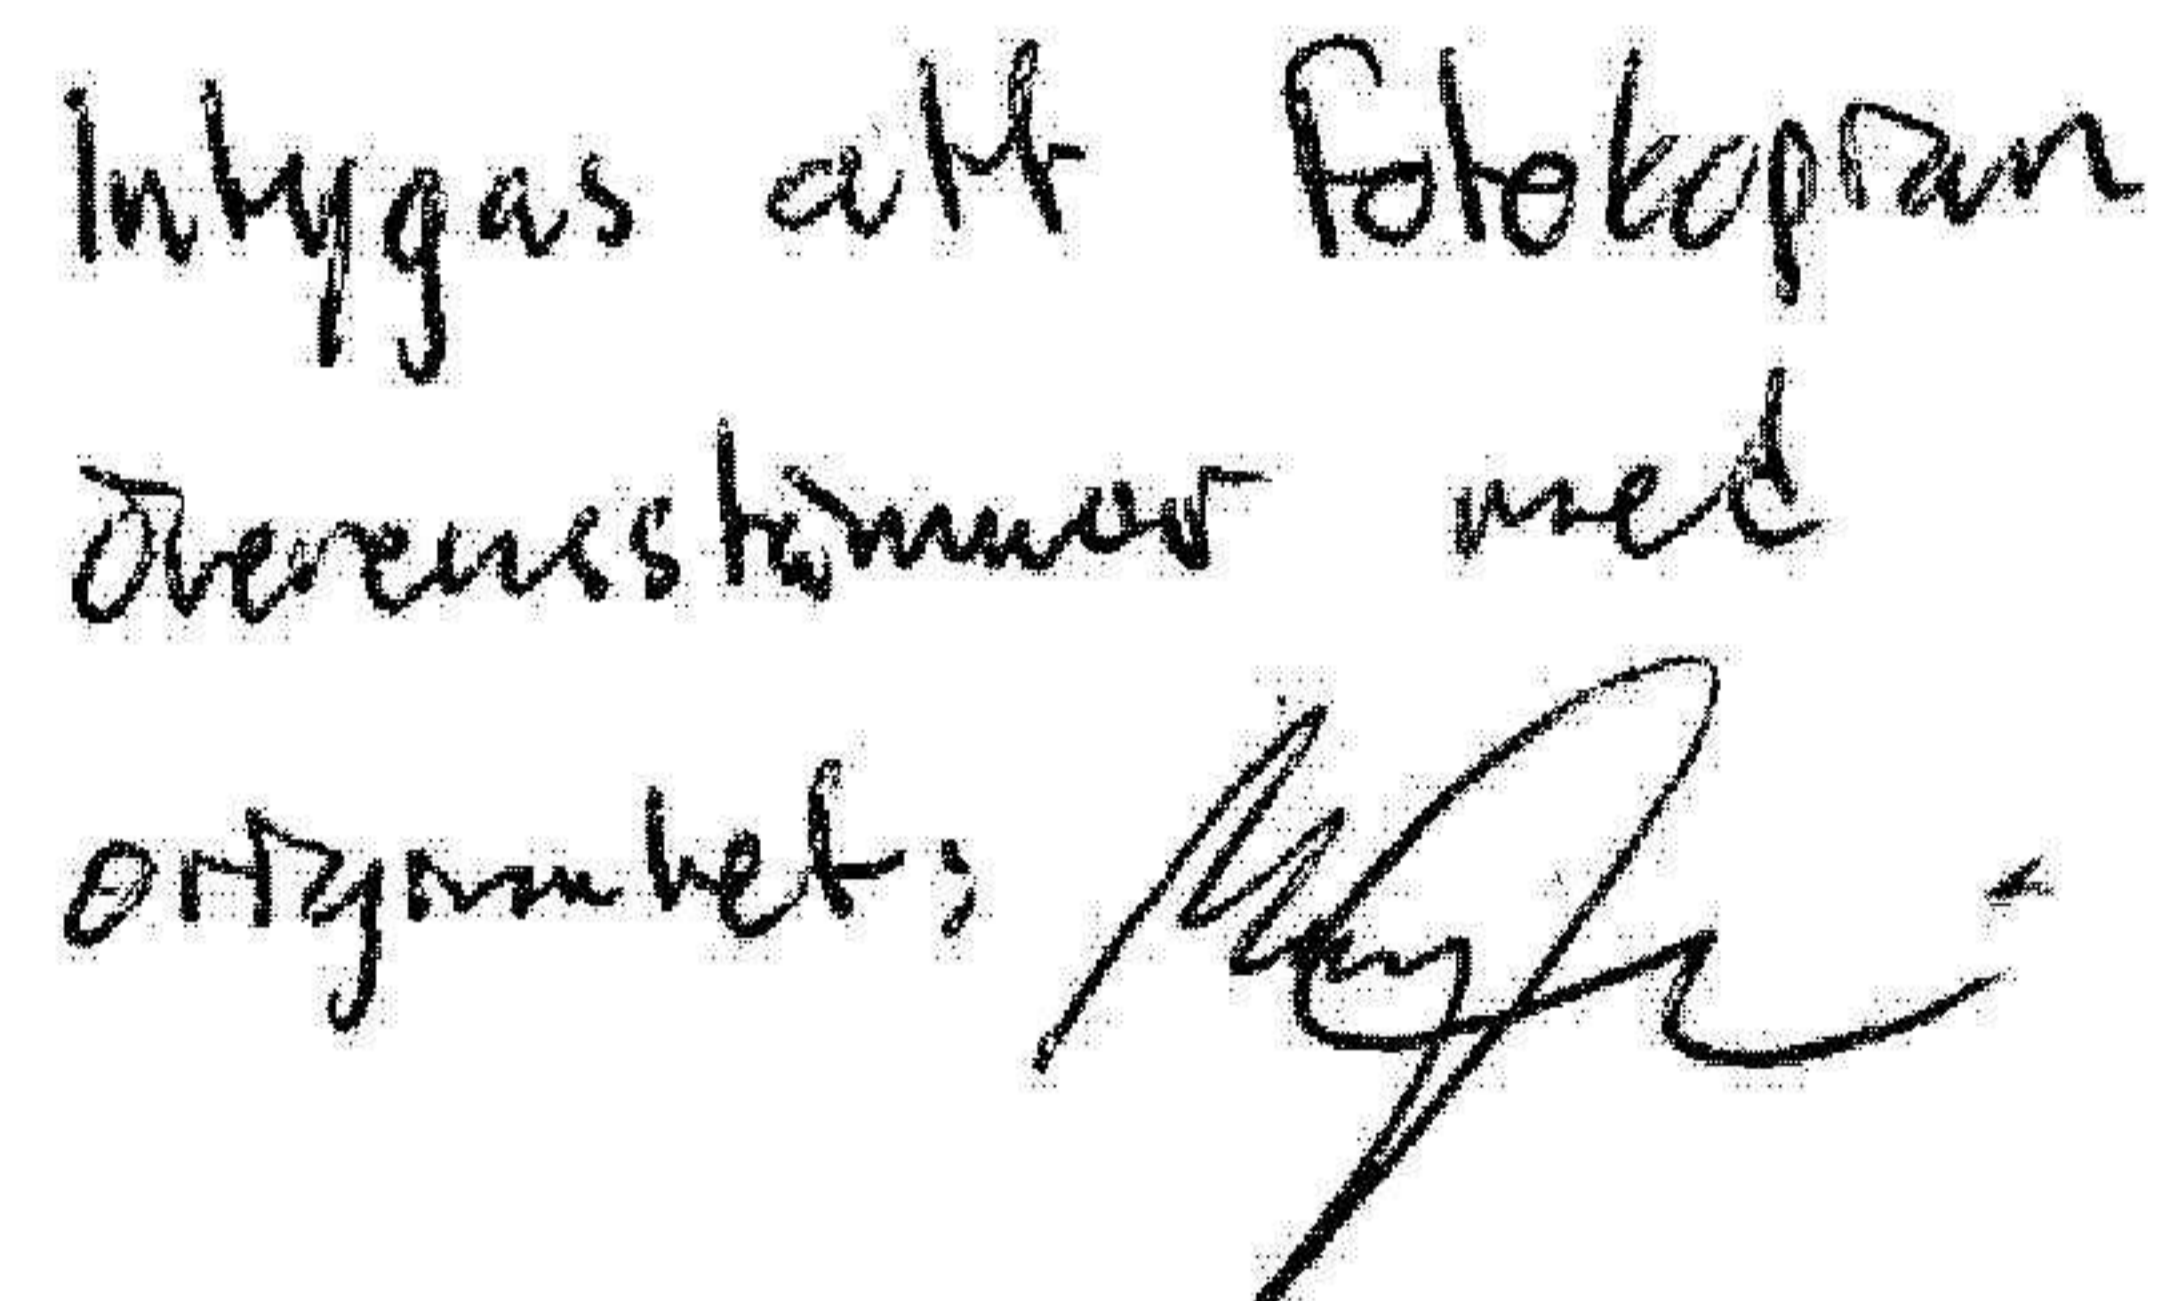 Intygas att fotokopian
överensstämmer med
originalet;